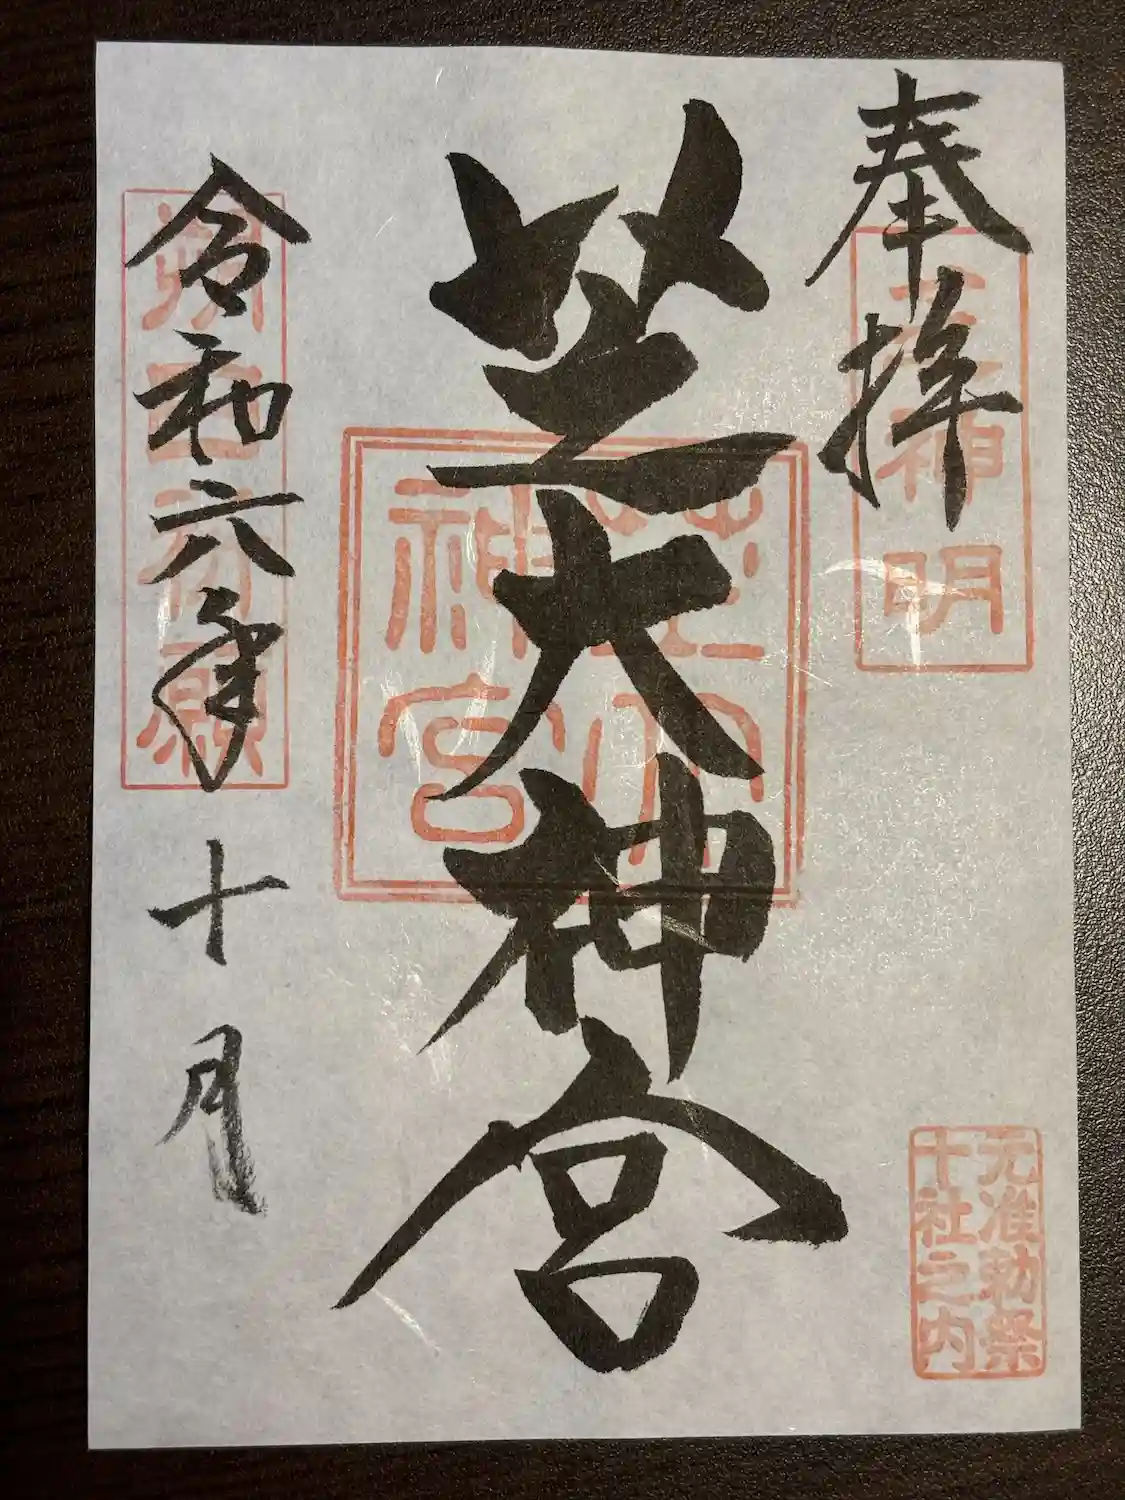 奉拝
神明
元准勅祭
十社之内
芝大神宮
芝大
神宮
令和六年十月